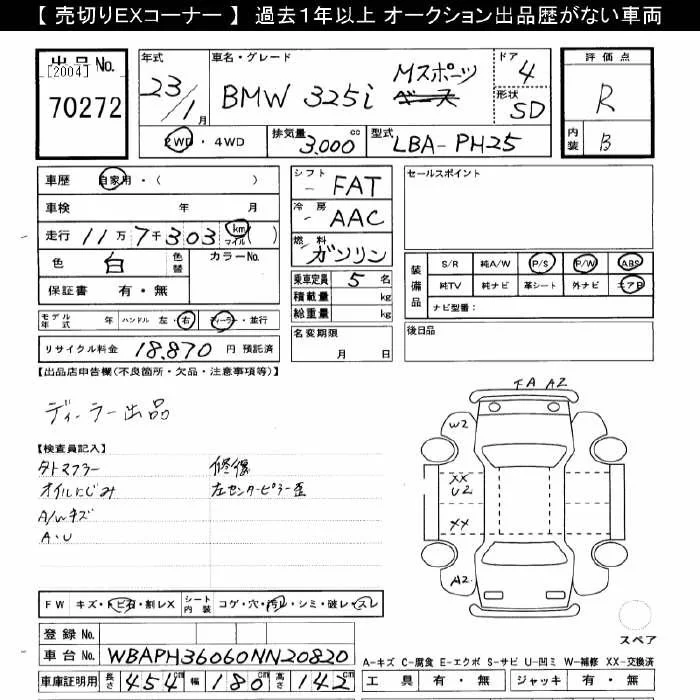 【 売切りEXコーナー 】 過去1年以上 オークション出品歴がない車両
出品No. [2004] 70272
年式 23/1月
車名・グレード BMW 325i Mスポーツ ベース
ドア 4
形状 SD
評価点 R
内装 B
2WD・4WD
排気量 3,000 cc
型式 LBA-PH25
車歴 自家用・( )
車検 年 月
走行 11万7千303 km マイル ( )
色 白 色替 カラーNo.
保証書 有・無
シフト - FAT
冷房 - AAC
燃料 ガソリン
乗車定員 5 名
積載量 kg
総重量 kg
セールスポイント
装備品 S/R 純A/W P/S P/W ABS
純TV 純ナビ 革シート 外ナビ エアB
ナビ型番:
モデル年式 年 ハンドル 左・右 ディーラー・並行
名変期限 月 日
後日品
リサイクル料金 18,870 円 預託済
【出品店申告欄(不良箇所・欠品・注意事項等)】
ディーラー出品
FA A2
W2
XX
U2
XX
A2
【検査員記入】
タトマフラー 修復
オイルにじみ 左センターピラー歪
A/Wキズ
A・U
FW キズ・トビ石・割レX シート内装 コゲ・穴・汚レ・シミ・破レ・スレ
スペア
登録No.
車台No. WBAPH36060NN20820
A-キズ C-腐食 E-エクボ S-サビ U-凹ミ W-補修 XX-交換済
車庫証明用 長さ 454 cm 幅 180 cm 高さ 142 cm
工具 有・無 ジャッキ 有・無